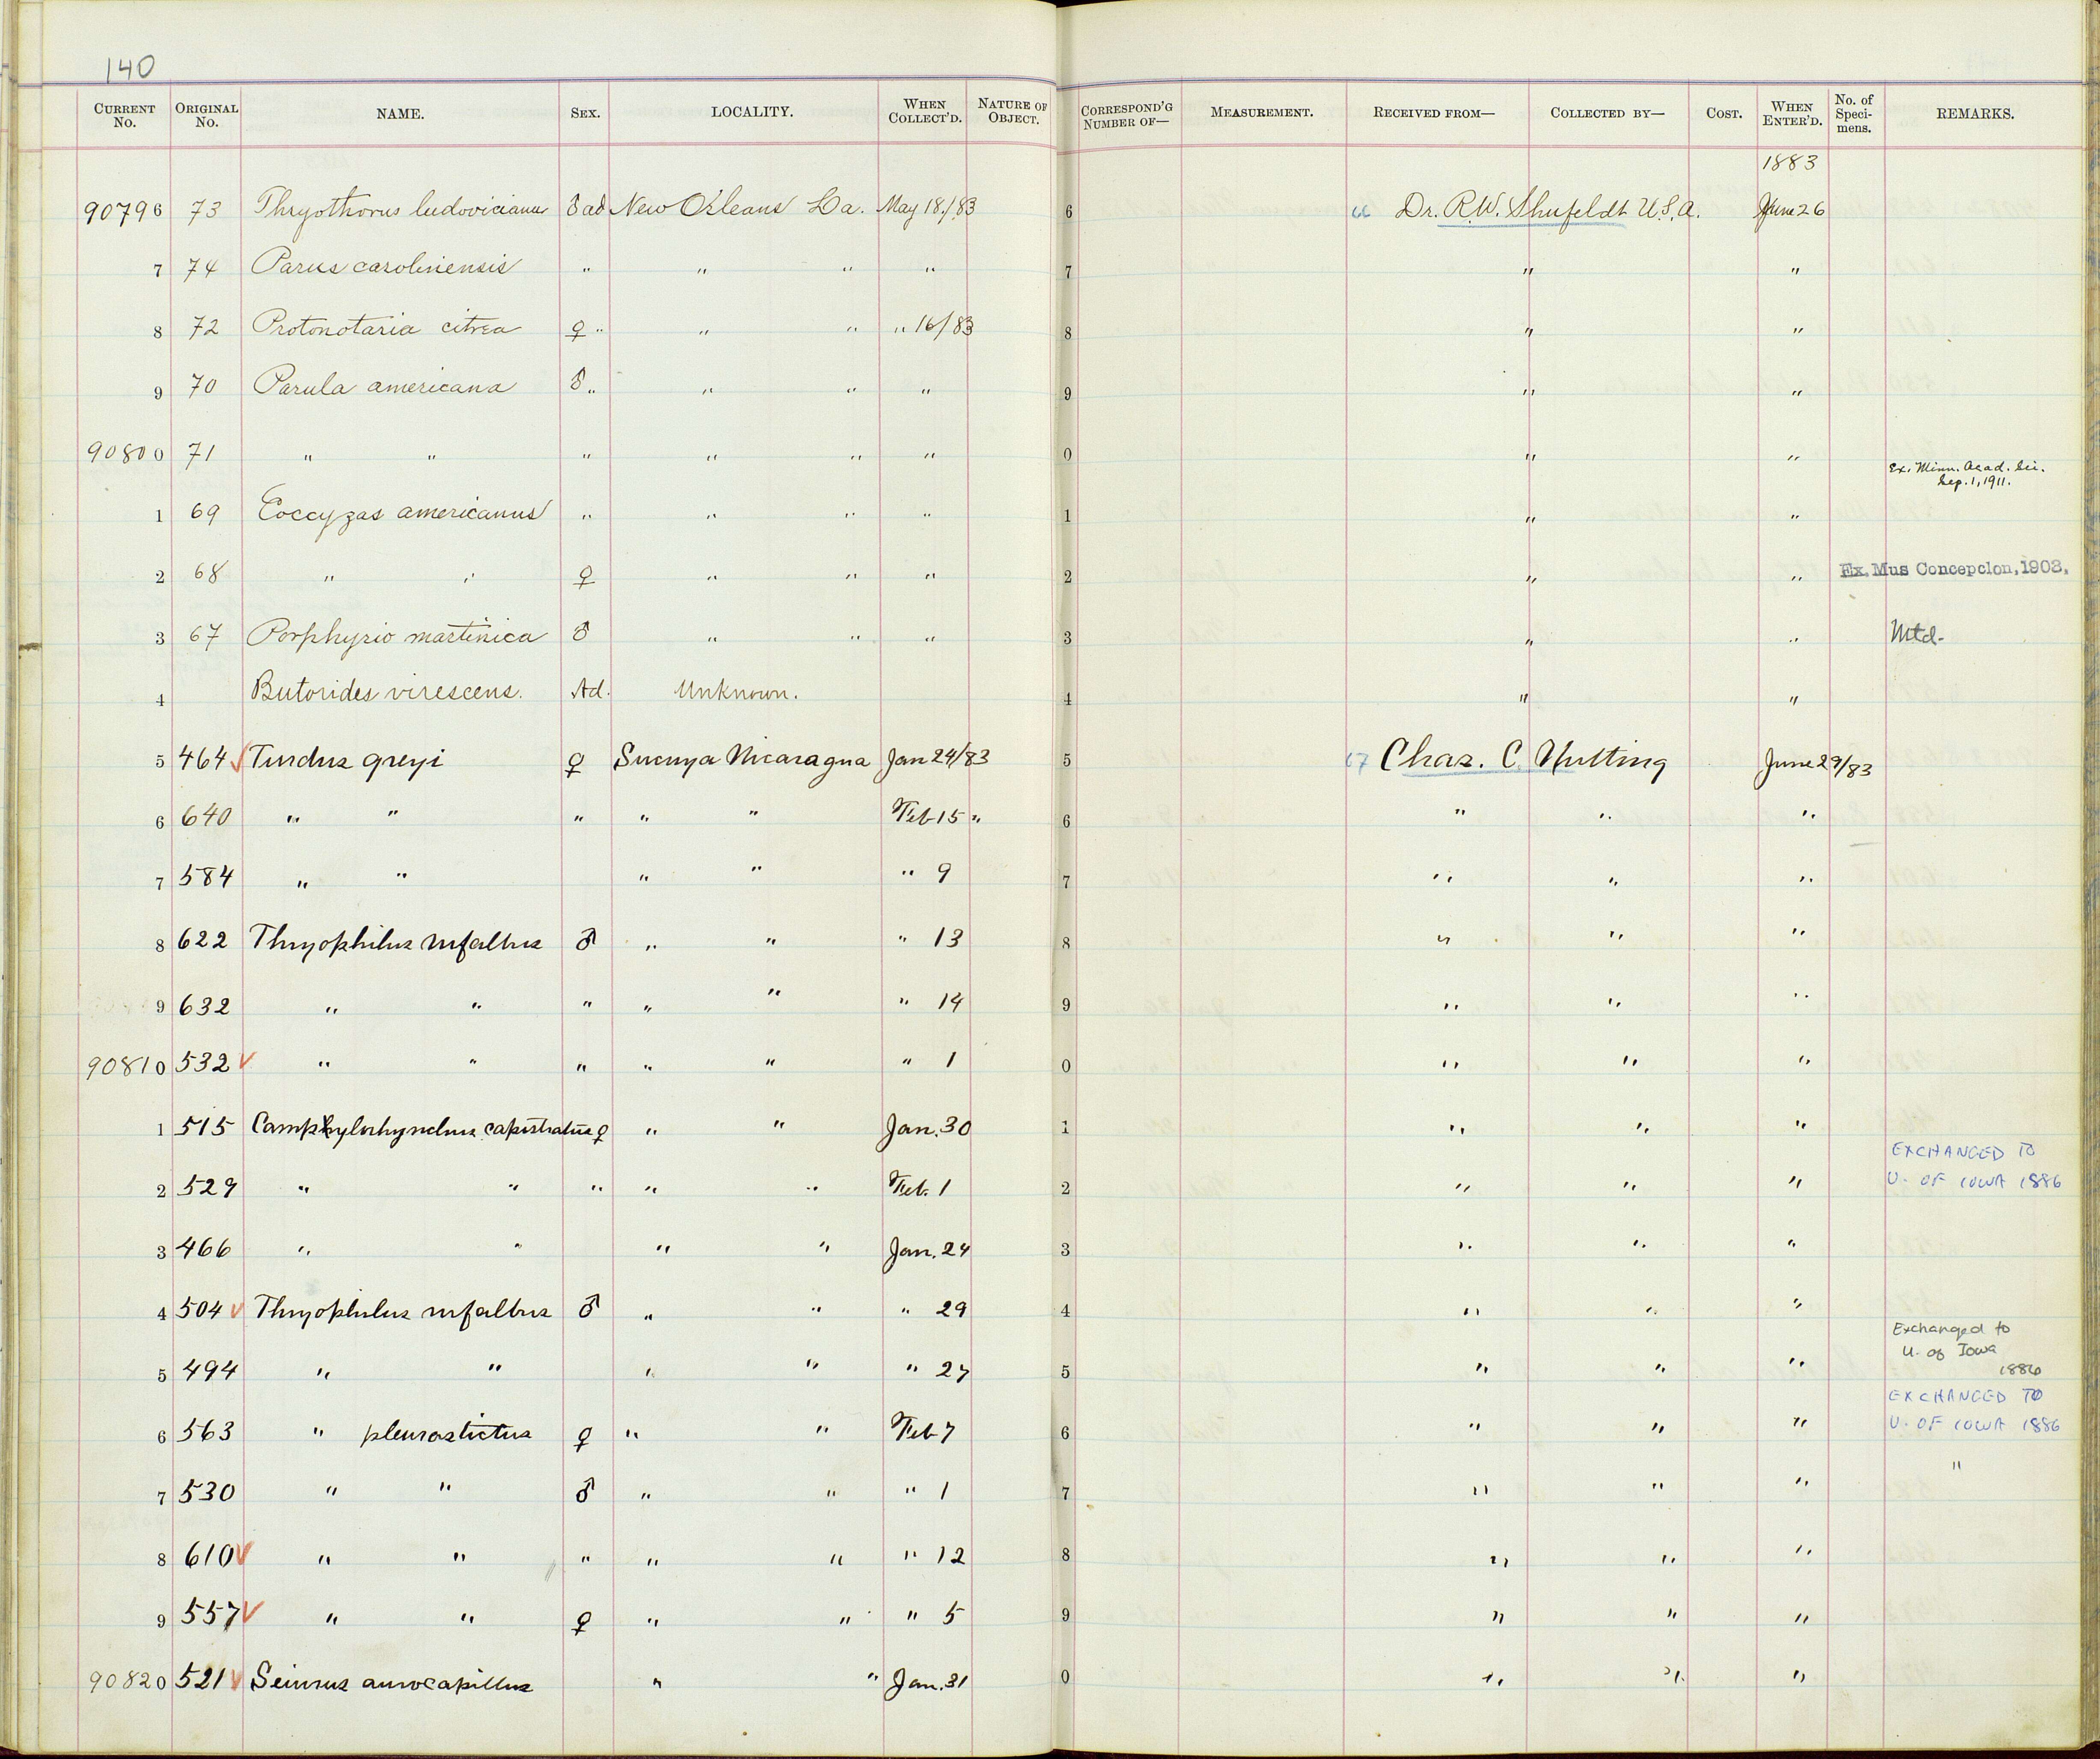 140
CURRENT No. ORIGINAL No. NAME. SEX. LOCALITY. WHEN COLLECT'D. NATURE OF OBJECT. CORRESPOND'G NUMBER OF— MEASUREMENT. RECEIVED FROM— COLLECTED BY— COST. WHEN ENTER'D. No. of Speci-mens. REMARKS.
1883
90796 73 Thryothorus ludovicianus ♂ ad New Orleans La. May 18./83 6 66 Dr. R.W. Shufeldt U.S.A. June 26
7 74 Parus carolinensis " " " " 7 " "
8 72 Protonotaria citrea ♀ " " " " 16/83 8 " "
9 70 Parula americana ♂ " " " " 9 " "
90800 71 " " " " " " 0 " "
Ex. Minn. Acad. Sci.
Sep. 1, 1911.
1 69 Coccyzas americanus " " " " 1 " "
2 68 " " ♀ " " " 2 " " Ex. Mus Concepcion, 1903.
3 67 Porphyrio martinica ♂ " " " 3 " " Mtd.
4 Butorides virescens. Ad. Unknown. 4 " "
5 464 ✓ Turdus greyi ♀ Sucuya Nicaragua Jan 24/83 5 67 Chas. C. Nutting June 29/83
6 640 " " " " " Feb 15 " 6 " " "
7 584 " " " " " 9 7 " " "
8 622 Thryophilus rufalbus ♂ " " " 13 8 " " "
9 632 " " " " " " 14 9 " " "
90810 532 ✓ " " " " " " 1 0 " " "
1 515 Camphylorhynchus capistratus ♀ " " Jan. 30 1 " " "
EXCHANGED TO
2 529 " " " " " Feb. 1 2 " " " U. OF IOWA 1886
3 466 " " " " Jan. 24 3 " " "
4 504 ✓ Thryophilus rufalbus ♂ " " " 29 4 " " "
Exchanged to
U. of Iowa
5 494 " " " " " 27 5 " " " 1886
EXCHANGED TO
6 563 " pleurostictus ♀ " " Feb 7 6 " " " U. OF IOWA 1886
7 530 " " ♂ " " " 1 7 " " " "
8 610 ✓ " " " " " " 12 8 " " "
9 557 ✓ " " ♀ " " " 5 9 " " "
90820 521 ✓ Seiurus aurocapillus " " Jan. 31 0 " " "